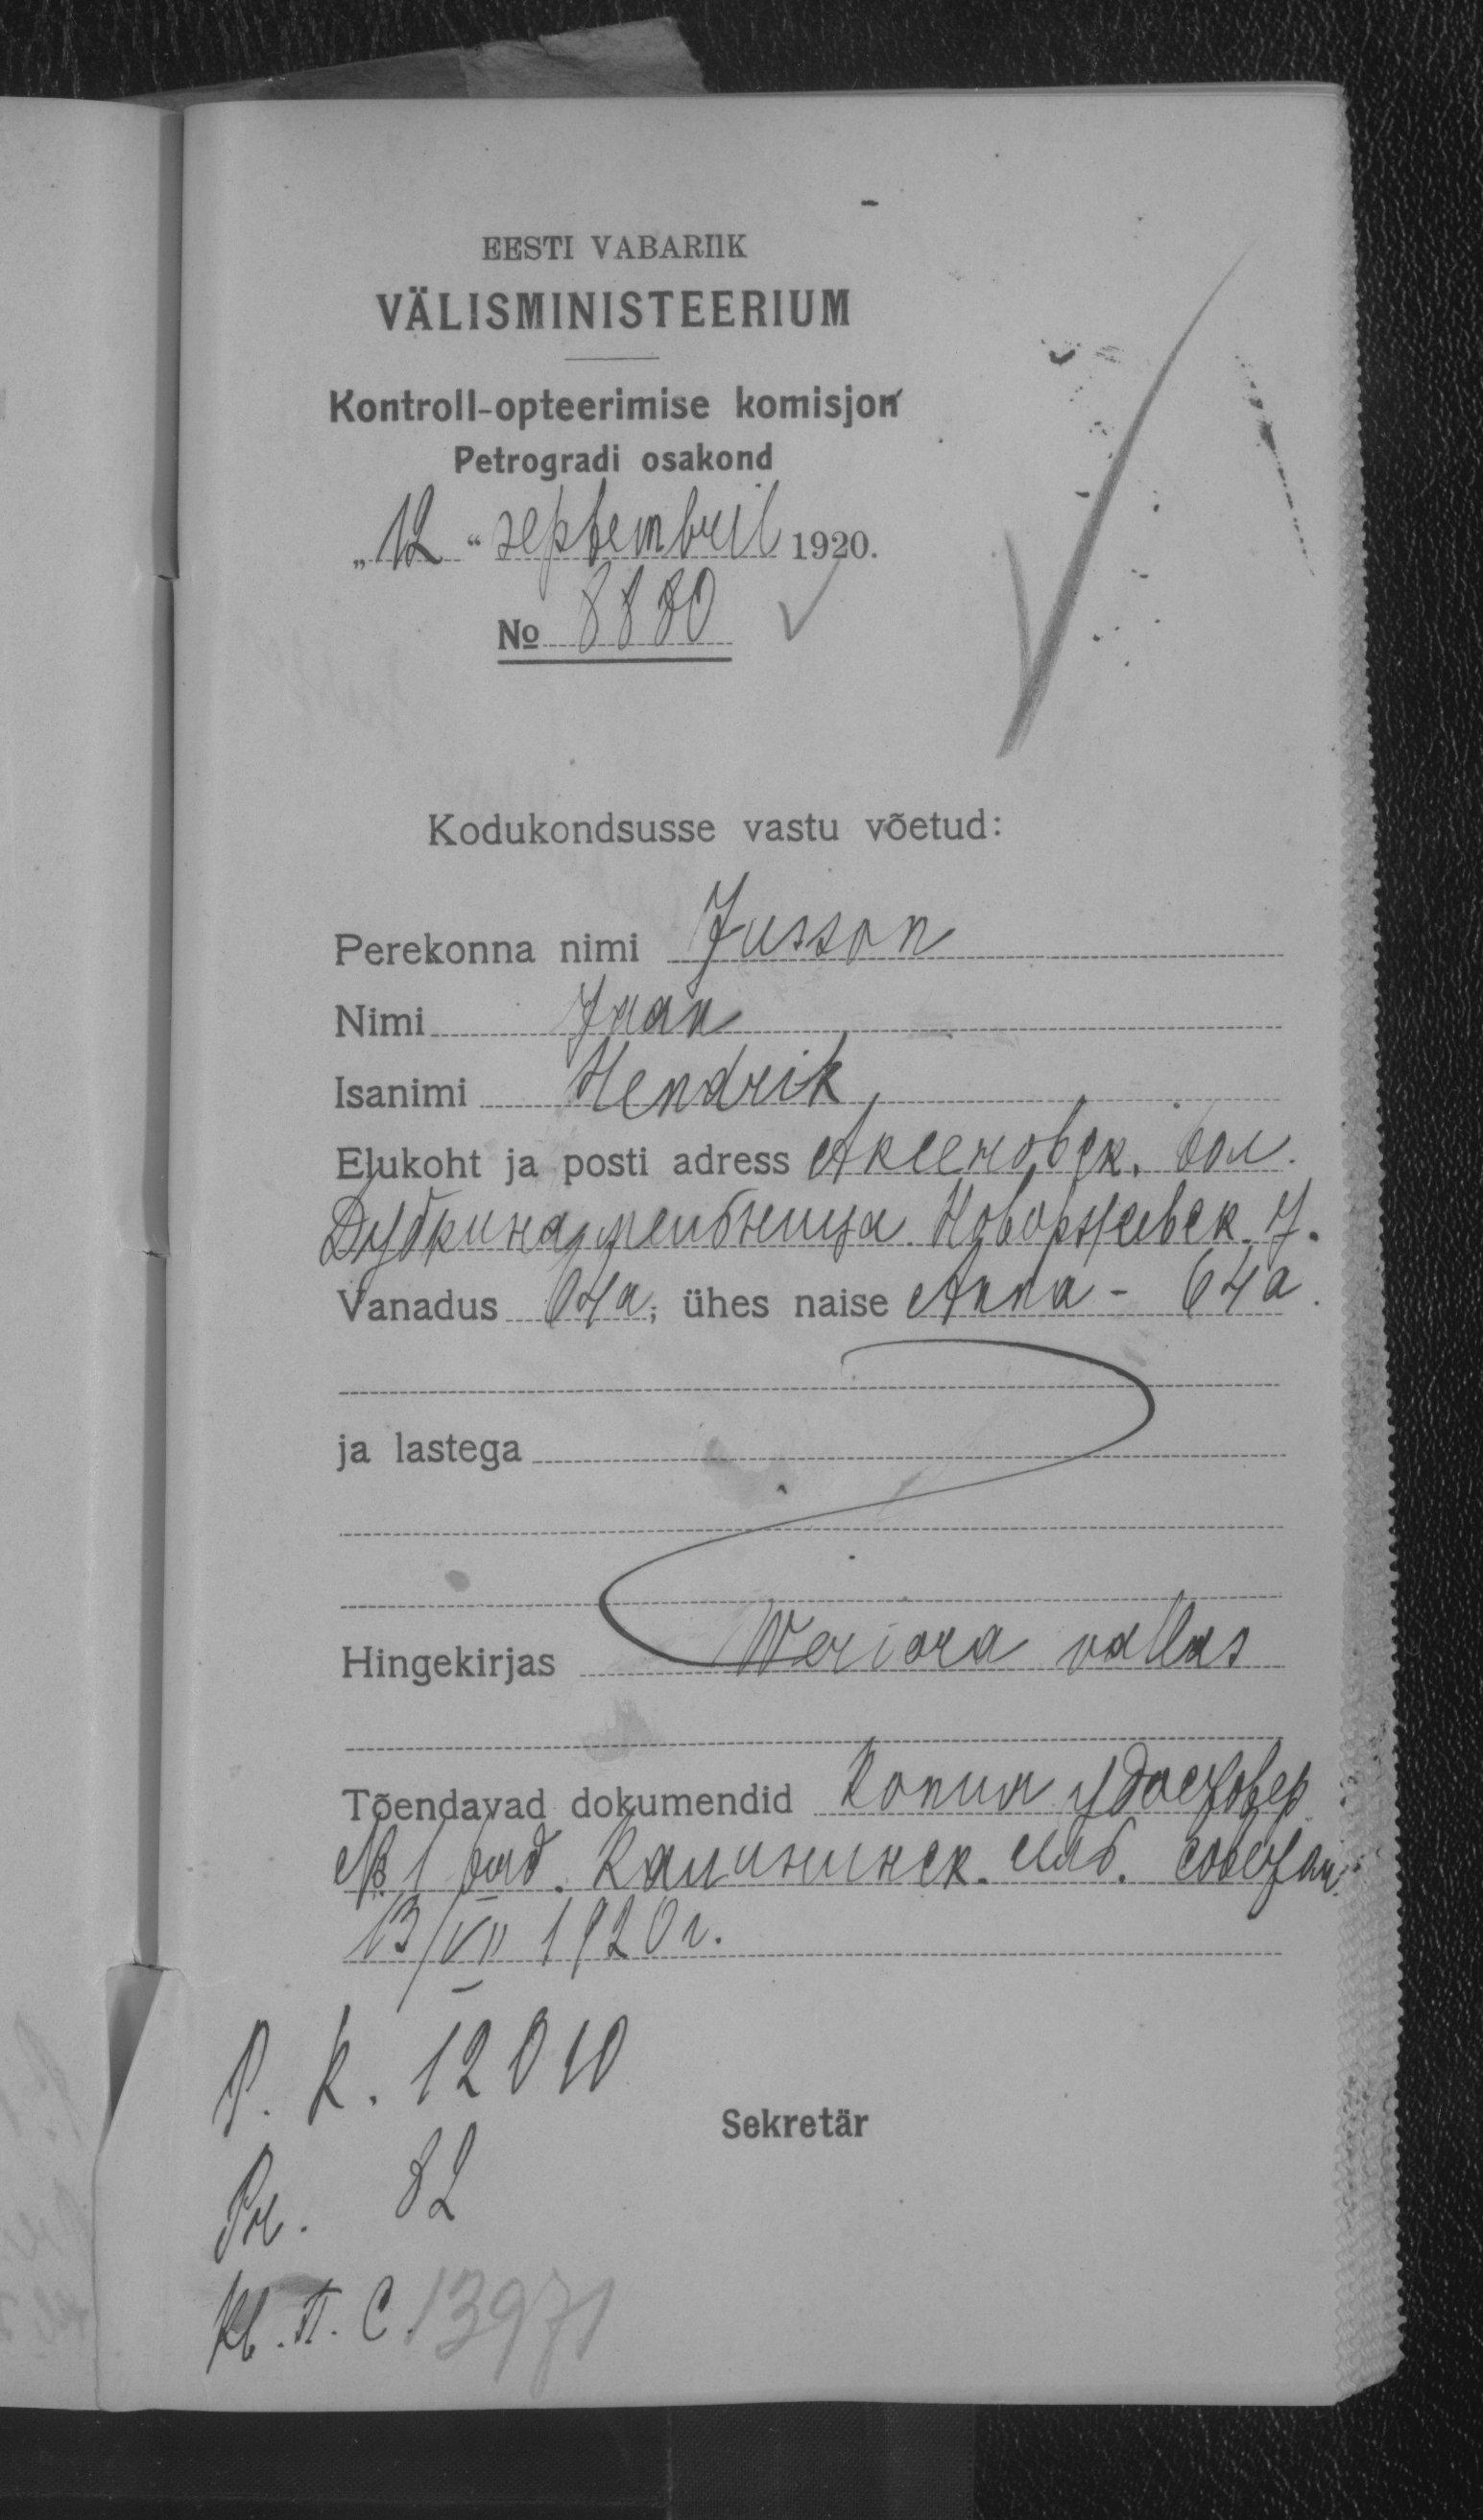 EESTI VABARIIK
VÄLISMINISTEERIUM
Kontroll-opteerimise komisjon
Petrogradi osakond
„12“ septembril 1920.
№ 8880
Kodukondsusse vastu võetud:
Perekonna nimi Jusson
Nimi Jaan
Isanimi Hendrik
Elukoht ja posti adress Аксеновск. вол.
Новоржевск. у.
Vanadus 64 a; ühes naise Anna - 64 a.
ja lastega
Hingekirjas Weriora vallas
Tõendavad dokumendid Копия удостовер
№ 1 выд.
13/VII 1920 г.
P. K. 12010
Sekretär
82
II. C. 13971